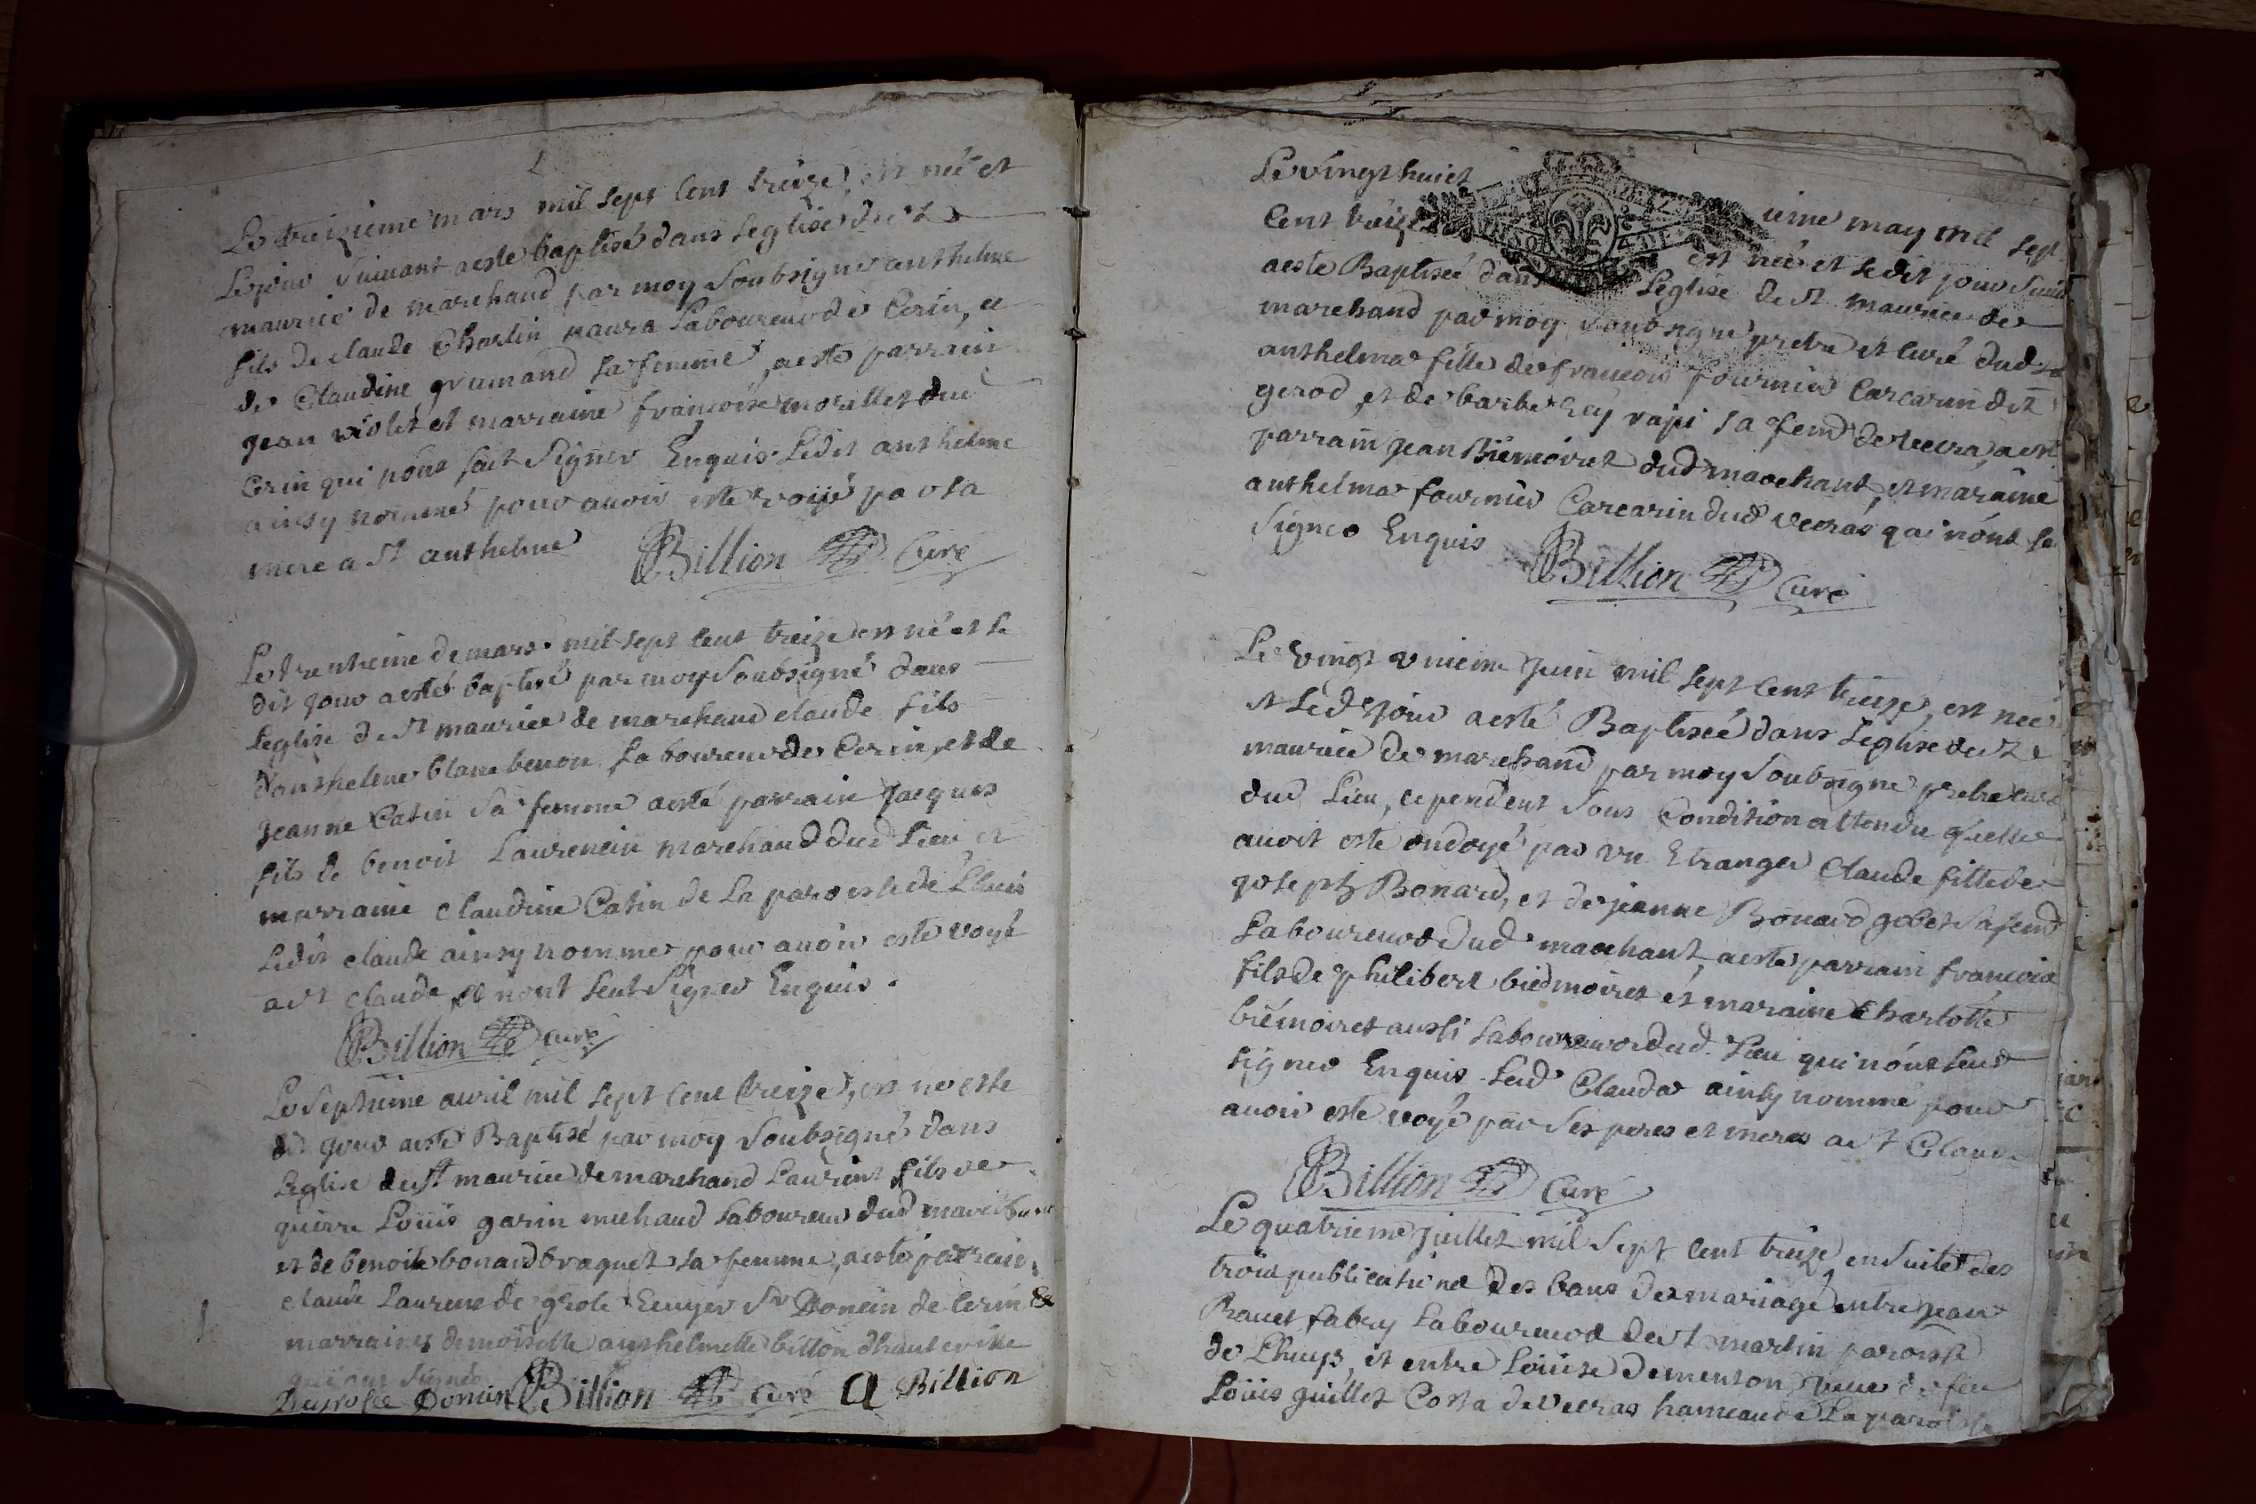 Le treizieme mars mil sept cent treize, est né et
Le jour suivant a esté baptisé dans Leglise de st
maurice de marchand par moy soubsigné anthelme
fils de claude Charlin maura Laboureur de Cerin, et
de Claudine grumand sa femme, a esté parrain
jean violet et marraine françoise morellet dud
Cerin qui n'ont sait signer Enquis. Ledit anthelme
ainsy nommé pour avoir esté voüé par sa
mere a st anthelme Billion Curé
Le trentieme de mars mil sept cent treize est né et le
dit jour a esté baptisé par moy soubsigné dans
Leglise de st maurice de marchand claude fils
d'anthelme blanc benon Laboureur de Cerin, et de
jeanne Catin sa femme a esté parrain jacques
fils de benoit Laurencin marchand dud Lieu et
marraine claudine Catin de La paroisse de Lhuis
Ledit claude ainsy nommé pour avoir esté voyé
a st claude et n'ont sceut signer Enquis.
Billion curé
Le septieme avril mil sept cent treize, est né et le
dit jour a esté Baptisé par moy soubsigné dans
Leglise de st maurice de marchand Laurent fils de
Louis garin michaud Laboureur dud
et de benoite bonard braquet sa femme, a esté parrain
claude Laurent de grole Ecuyer sr Domcin de Cerin &
marraine demoiselle anthelmette billion d'hauteville
qui ont signé
Degrolee Domcin Billion Curé a Billion
Le vingt huict ieme may mil sept
Cent treize est née et ledit jour suiv
a esté Baptisée dans Leglise de st maurice de
marchand par moy soubsigné pretre et curé dud
anthelma fille de francois fournier Carcarin dit
gerod, et de barbe sa fem de vecra, a esté
parrain jean Biemoiret dud marchant, et maraine
anthelma fournier Carcarin dud vecras qui n'ont sc
signer Enquis Billion Curé
Le vingt unieme juin mil sept cent treize, est née
et Led jour a esté Baptisée dans Leglise de st
maurice de marchand par moy soubsigné pretre curé
dud Lieu, cependent sous Condition attendu qu'elle
avoit esté ondoyé par un Etranger Claude fille de
joseph Bonard, et de jeanne Bonard gobet sa fem
Laboureur dud marchant, a esté parrain francois
fils de philibert biedmoiret et maraine Charlotte
biémoiret aussi Laboureur dud. Lieu qui n'ont sceut
signer Enquis Lad Clauda ainsy nommé pour
avoir esté voyé par ses peres et meres a st Claude
Billion Curé
Le quatrieme juillet mil sept cent treize ensuite des
trois publications des bans de mariage entre jean
Ravet fabry Laboureur de st martin paroisse
de Lhuys, et entre Louise dementon veuve de feu
Louis guillet Costa de vecras hameau de La paroisse